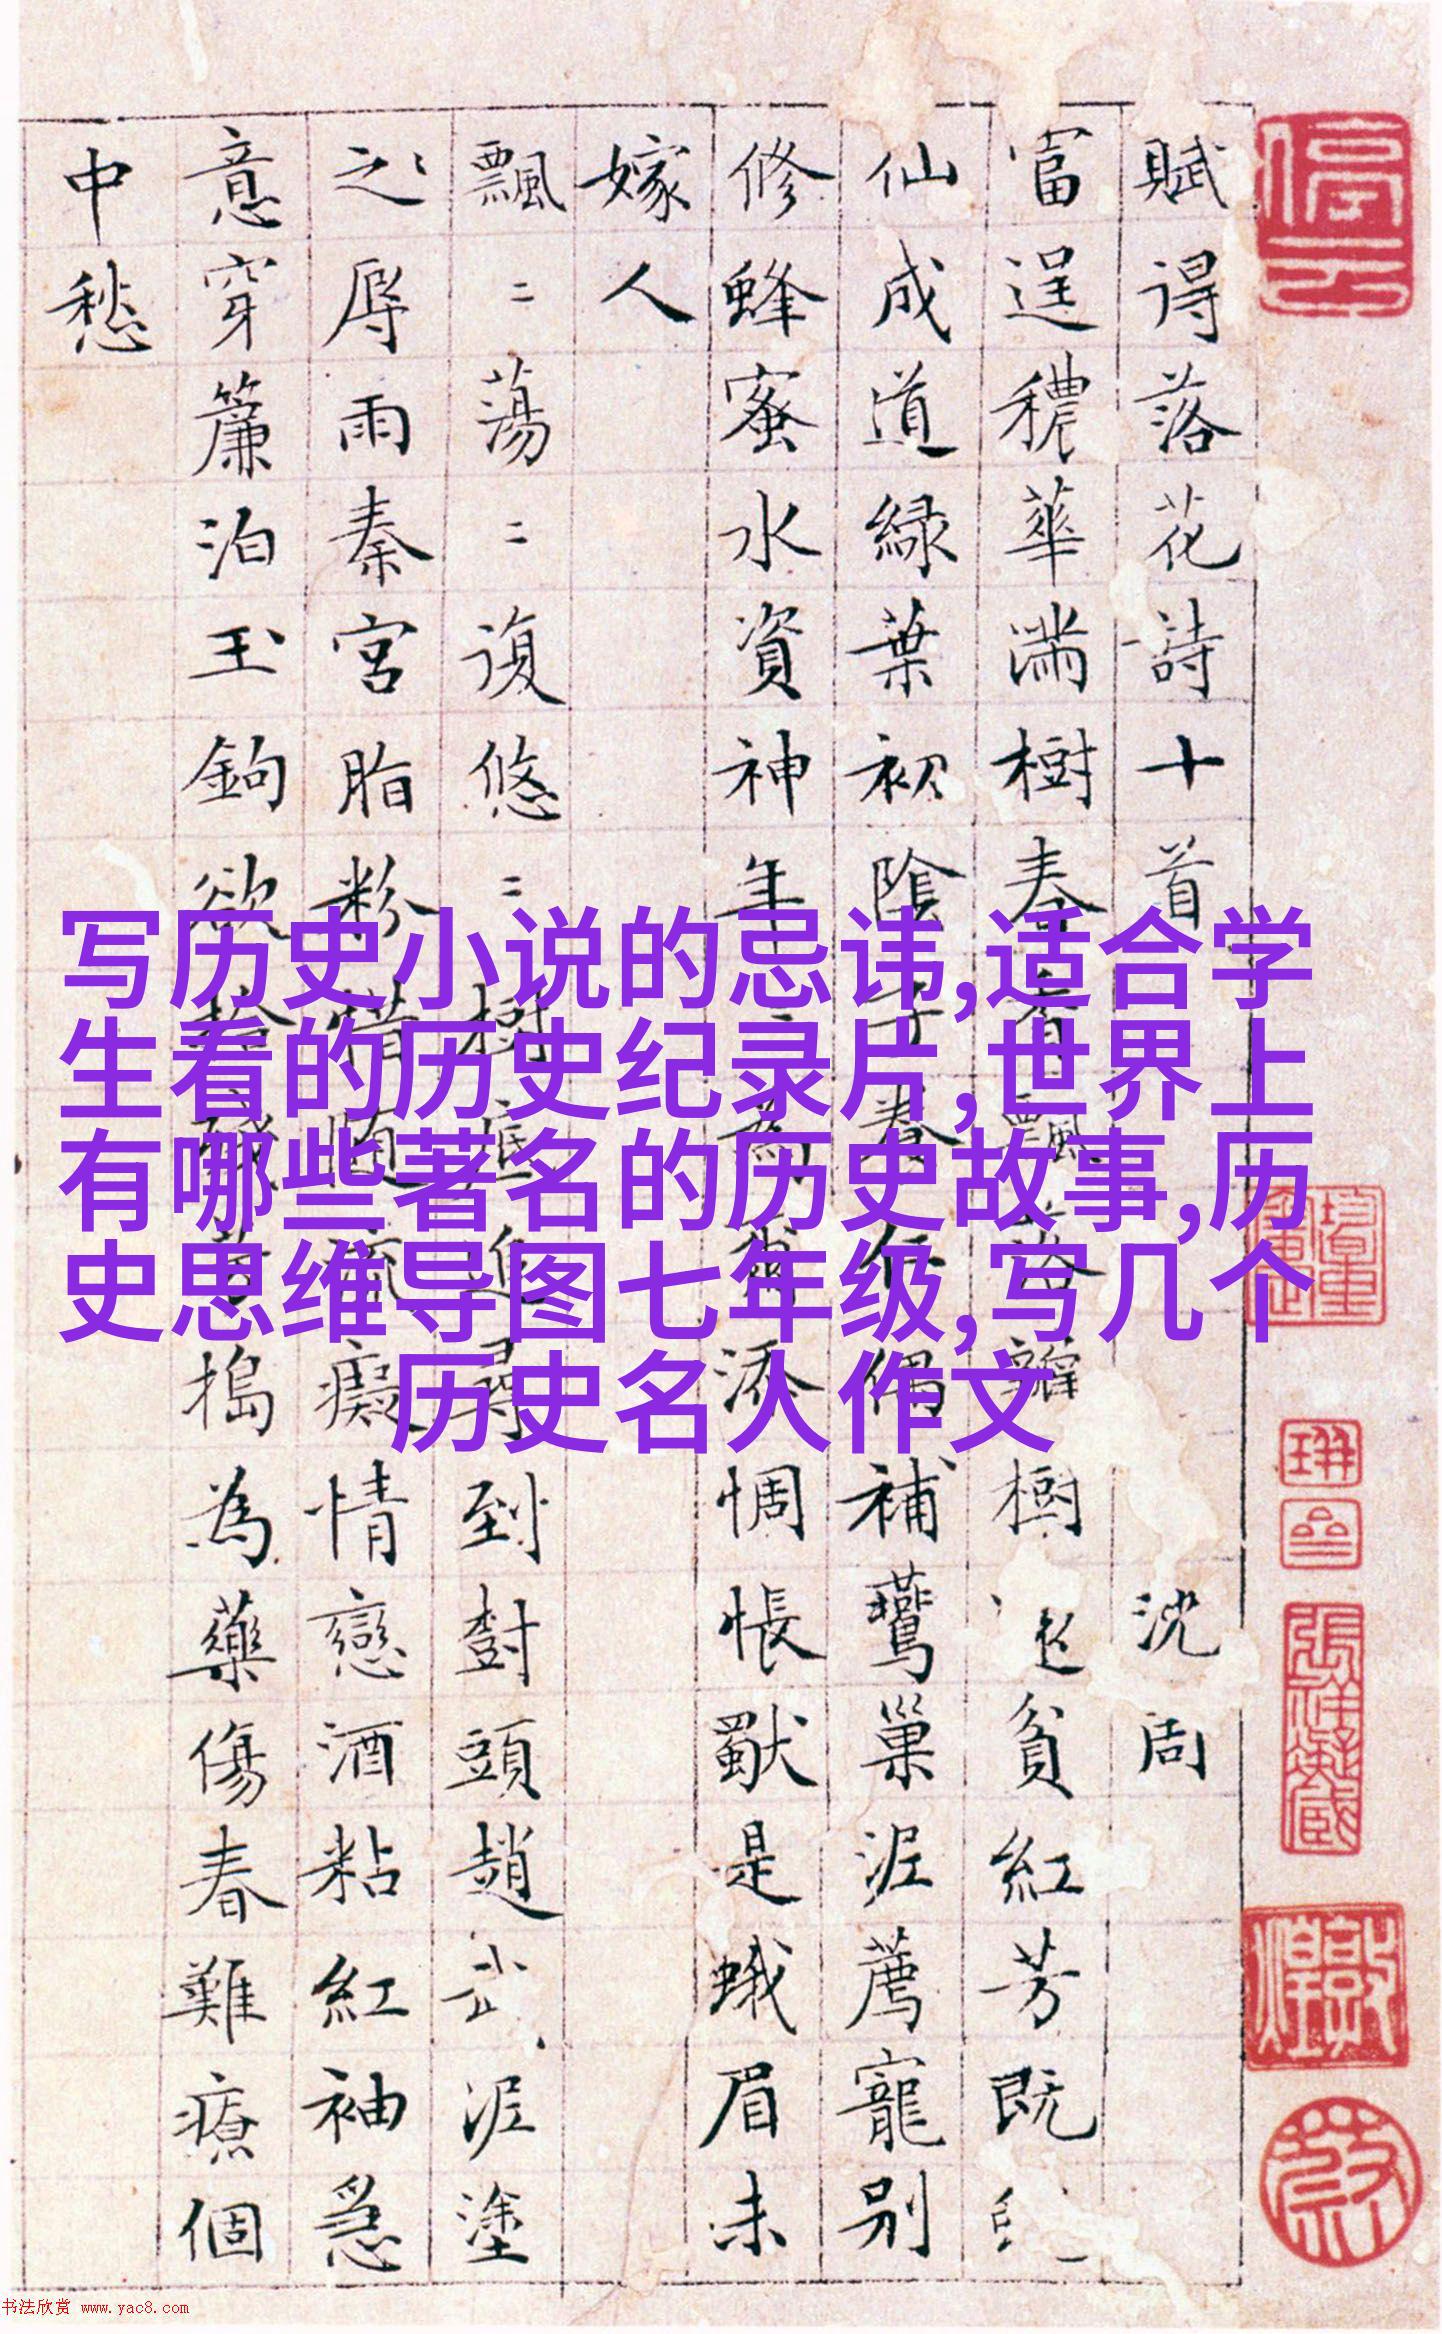 賦得落花詩十首 沈周
富逞穠華滿樹春香飄落瓣樹貧紅芳既
仙成道綠葉初陰子養仁偶補鶯巢泥薦寵別
修蜂蜜水資神年年為爾添惆悵獸是蛾眉未
嫁人
飄〻蕩〻復悠〻樹底追尋到樹頭趙武泥塗
之辱雨秦宮脂粉惜隨流癡情戀酒粘紅袖急
意穿簾泊玉鉤欲拾殘芳搗為藥傷春難療個
中愁
写历史小说的忌讳,适合学
生看的历史纪录片,世界上
有哪些著名的历史故事,历
史思维导图七年级,写几个
历史名人作文
停云
书法欣赏 www.yac8.com